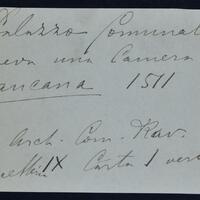 Palazzo Comunal
eva una Camera
ancana 1511
Arch. Com. Rav.
IX Carta 1 vers